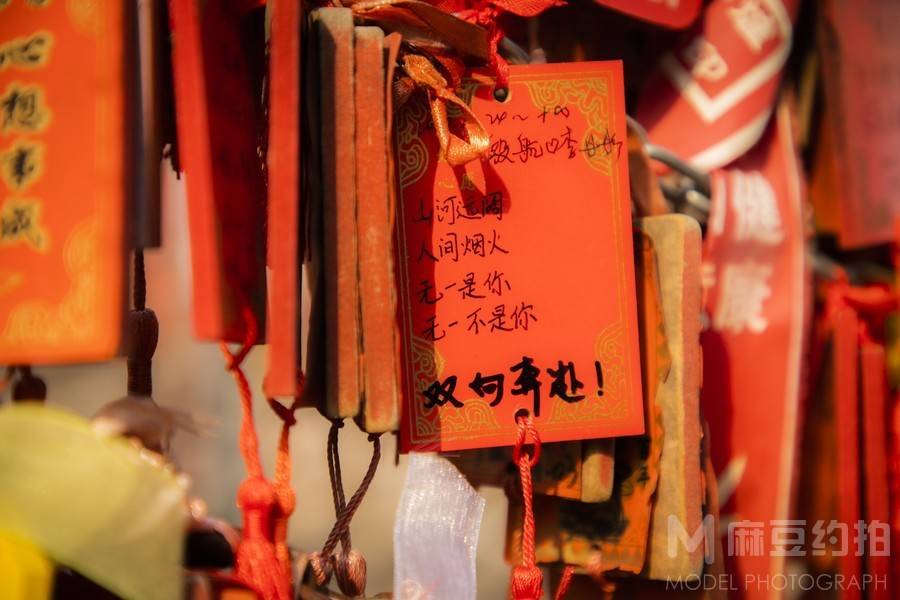 心想事成
启航四季
山河远阔
人间烟火
无一是你
无一不是你
双向奔赴！
健康
M 麻豆约拍
MODEL PHOTOGRAPH